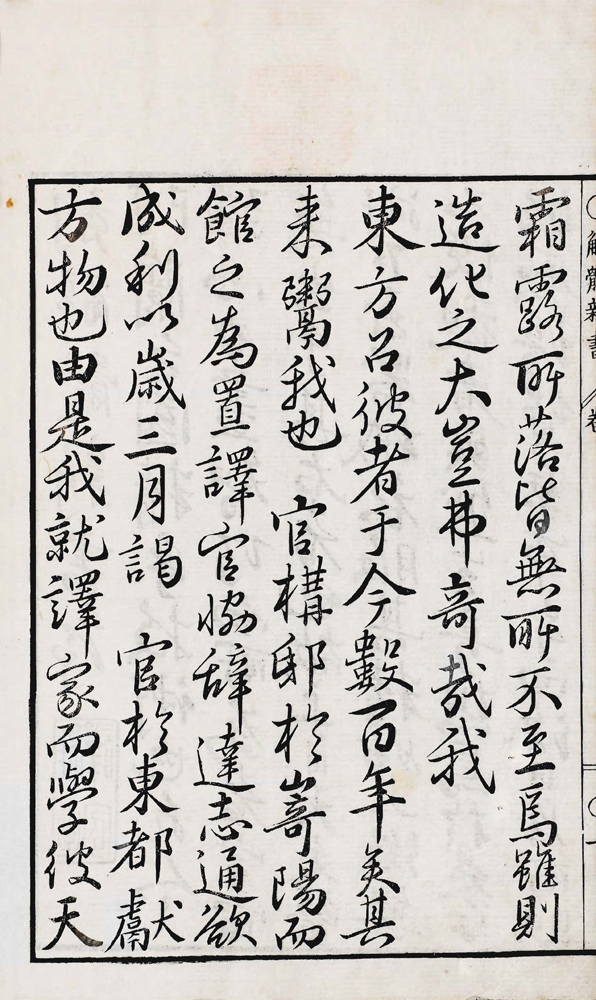 解體新書 卷 一
霜露所落皆無所不至焉雖則
造化之大豈弗奇哉我
東方召彼者于今數百年矣其
来鬻我也 官構邸於嵜陽而
館之為置譯官恊辞達志通欲
成利以歳三月謁 官於東都獻
方物也由是我就譯家而學彼天